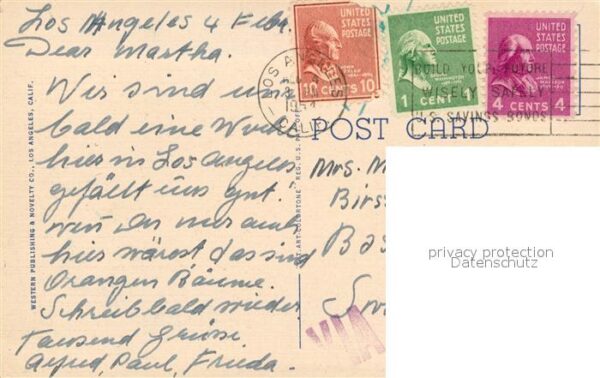 Los Angeles 4 Febr.
Dear Martha.
Wir sind nun
bald eine Woche
hier in Los Angelos
gefällt uns gut.
wen du nur auch
hier wärest das sind
Orangen Bäume.
Schreib bald wieder
Tausend Grüsse
Alfred, Paul, Frieda.
WESTERN PUBLISHING & NOVELTY CO., LOS ANGELES, CALIF.
UNITED STATES POSTAGE
10 CENTS 10
UNITED STATES POSTAGE
1 CENT 1
UNITED STATES POSTAGE
4 CENTS 4
LOS ANGELES
CALIF
BUILD YOUR FUTURE
WISELY SAFELY
U.S. SAVINGS BONDS
POST CARD
Mrs. M
Birs
Bas
VIA
privacy protection
Datenschutz